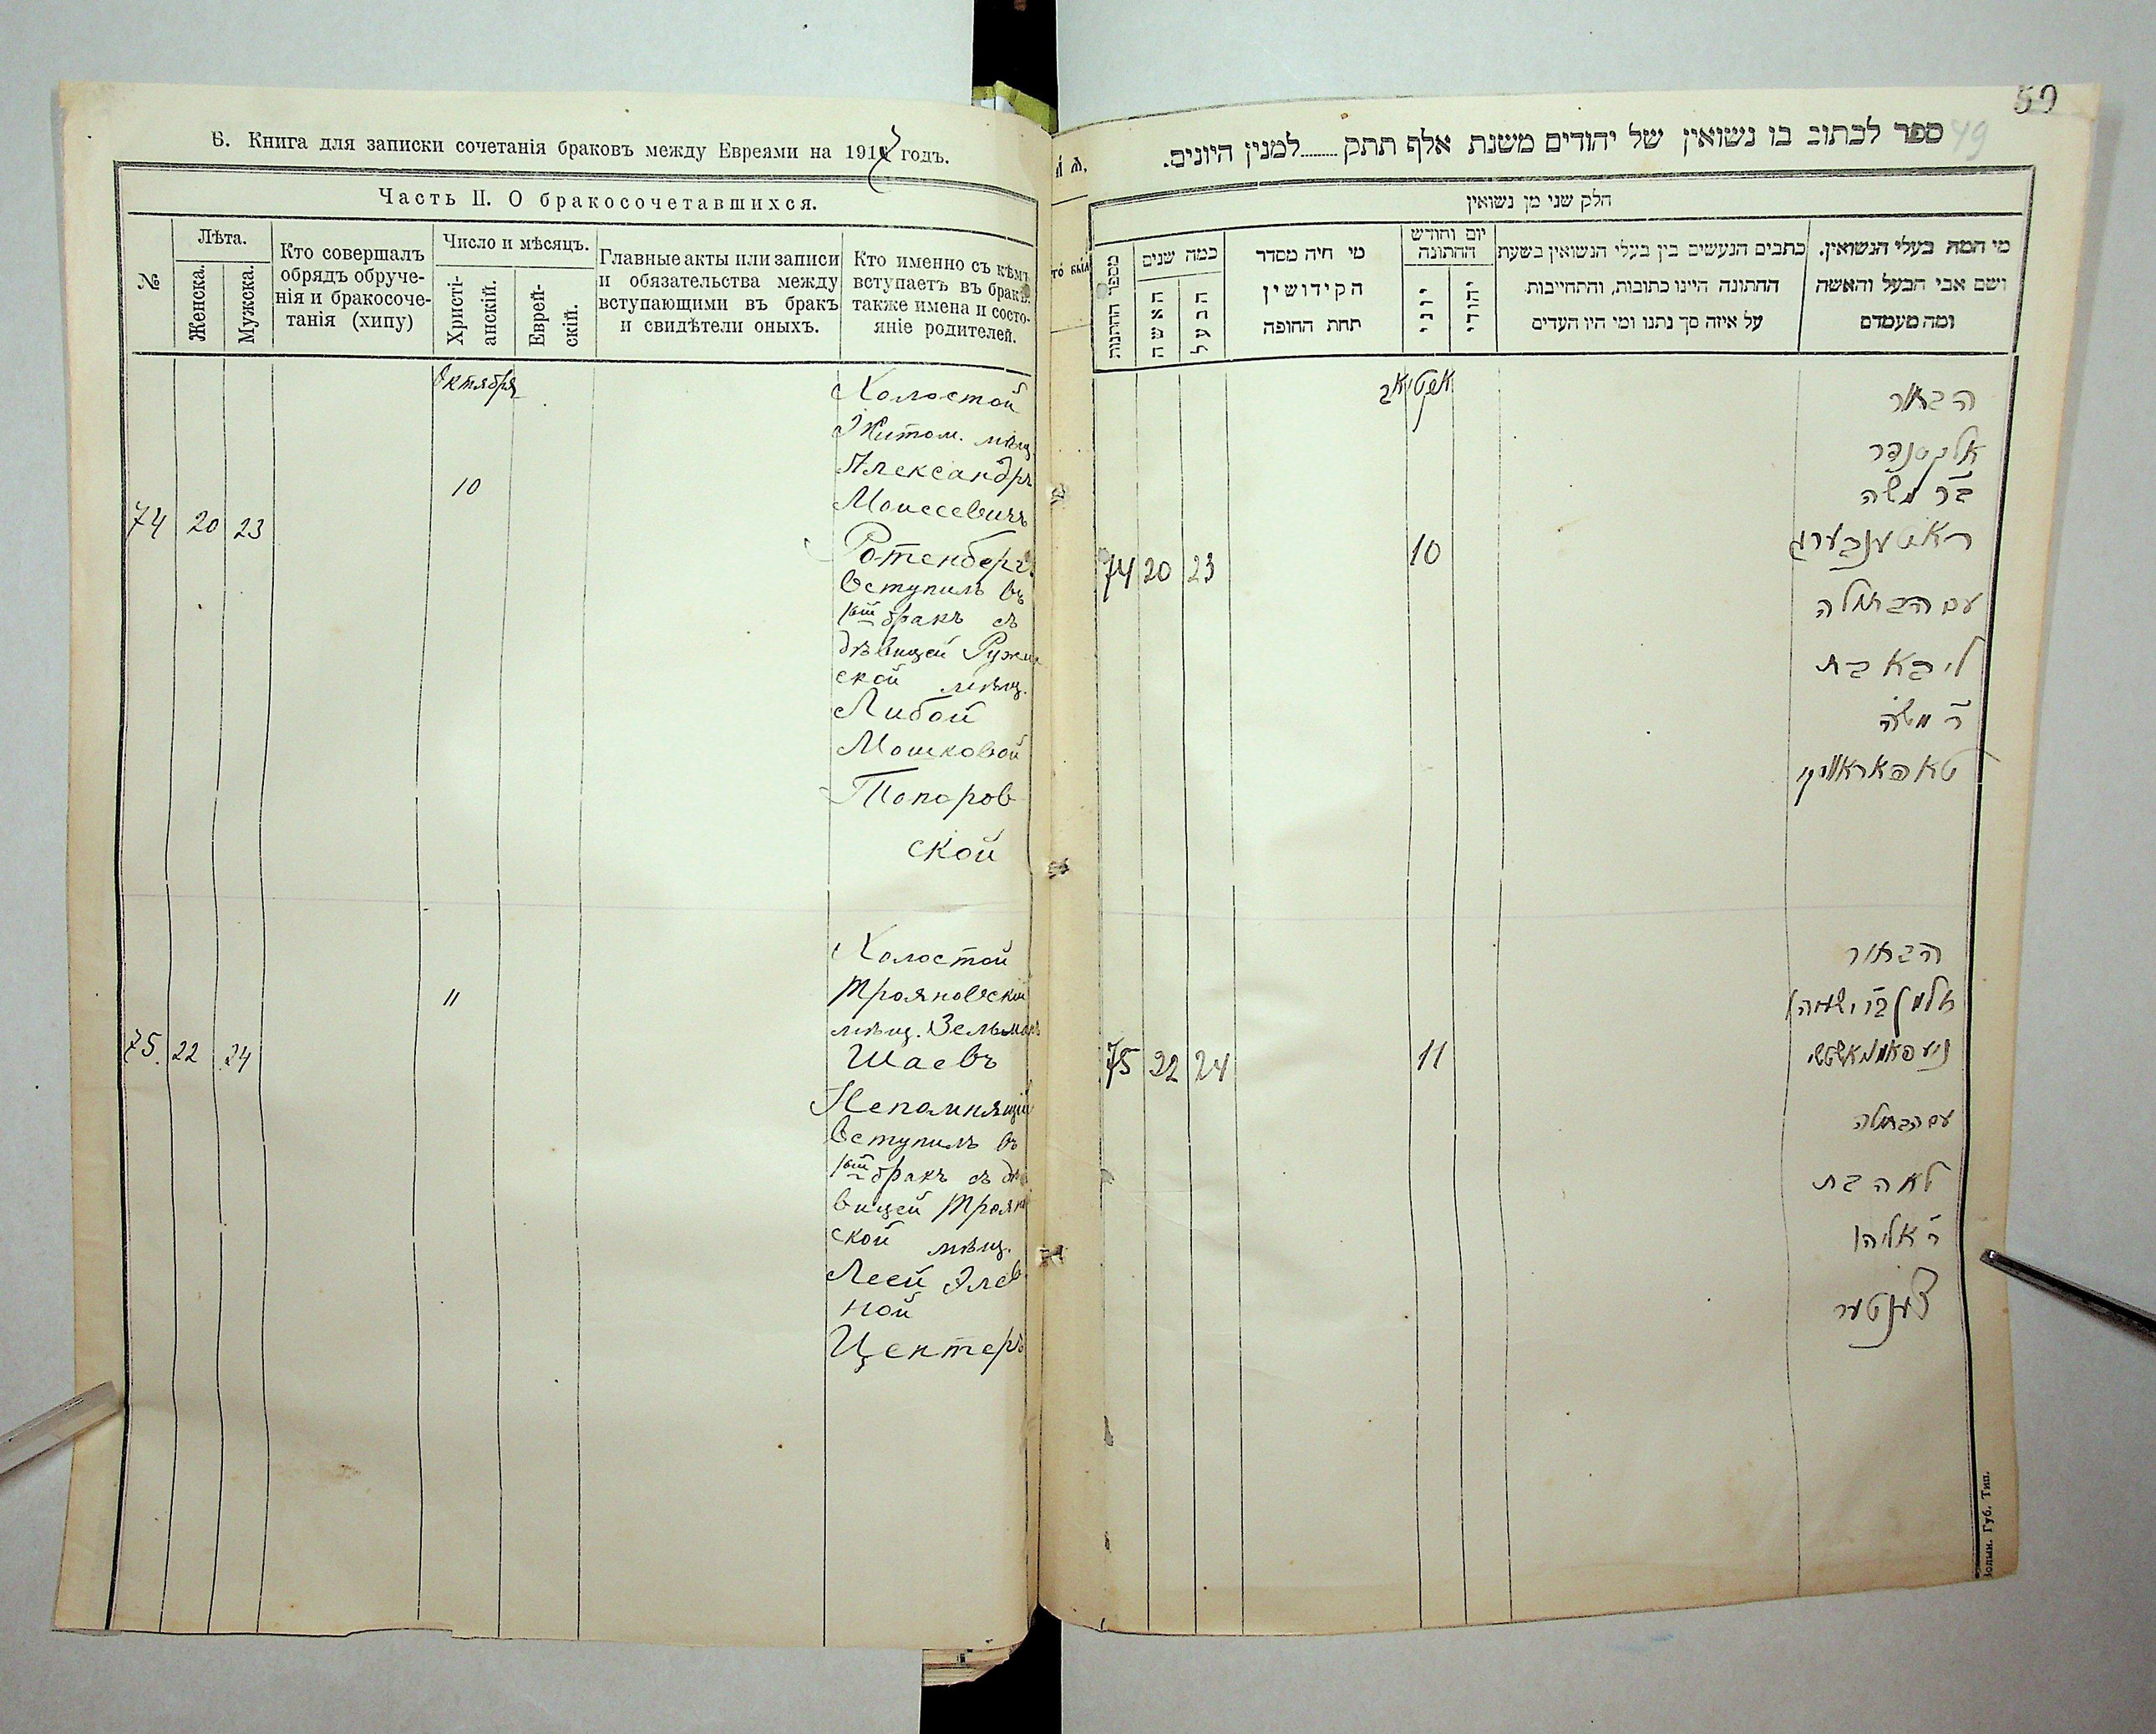 Б. Книга для записки сочетанія браковъ между Евреями на 1917 годъ.
Часть II. О бракосочетавшихся.
№
Лѣта.
Женска.
Мужска.
Кто совершалъ
обрядъ обруче-
нія и бракосоче-
танія (хипу)
Число и мѣсяцъ.
Христі-
анскій.
Еврей-
скій.
Главные акты или записи
и обязательства между
вступающими въ бракъ
и свидѣтели оныхъ.
Кто именно съ кѣмъ
вступаетъ въ бракъ
также имена и состо-
яніе родителей.
Октября
74 20 23
10
Холостой
Житом. мѣщ.
Александръ
Моисеевичъ
Ротенбергъ
вступилъ въ
1ый бракъ съ
дѣвицей Ружин
ской мѣщ.
Либой
Мошковой
Топоров
ской
75. 22 24
11
Холостой
Трояновскій
мѣщ. Зельманъ
Шаевъ
Непомнящій
вступилъ въ
1ый бракъ съ дѣ
вицей Троян
ской мѣщ.
Леей Элев
ной
Центеръ
50
49
ספר לכתוב בו נשואין של יהודים משנת אלף תתק........למנין היונים.
חלק שני מן נשואין
מי המה בעלי הנשואין.
ושם אבי הבעל והאשה
ומה מעמדם
כתבים הנעשים בין בעלי הנשואין בשעת
החתונה היינו כתובות, והתחייבות
על איזה סך נתנו ומי היו העדים
יום וחודש
החתונה
יהודי
יוני
מי היה מסדר
הקידושין
תחת החופה
כמה שנים
הבעל
האשה
מספר החתונות
אקטיאב
74 20 23
10
הבחור
אלכסנדר
ב״ר משה
ראטענבערג
עם הבתולה
ליבא בת
ר׳ משה
טאפאראווסקי
75 22 24
11
הבחור
זלמן ב״ר ישעיהו
עם הבתולה
לאה בת
ר׳ אליהו
צענטער
Волын. Губ. Тип.